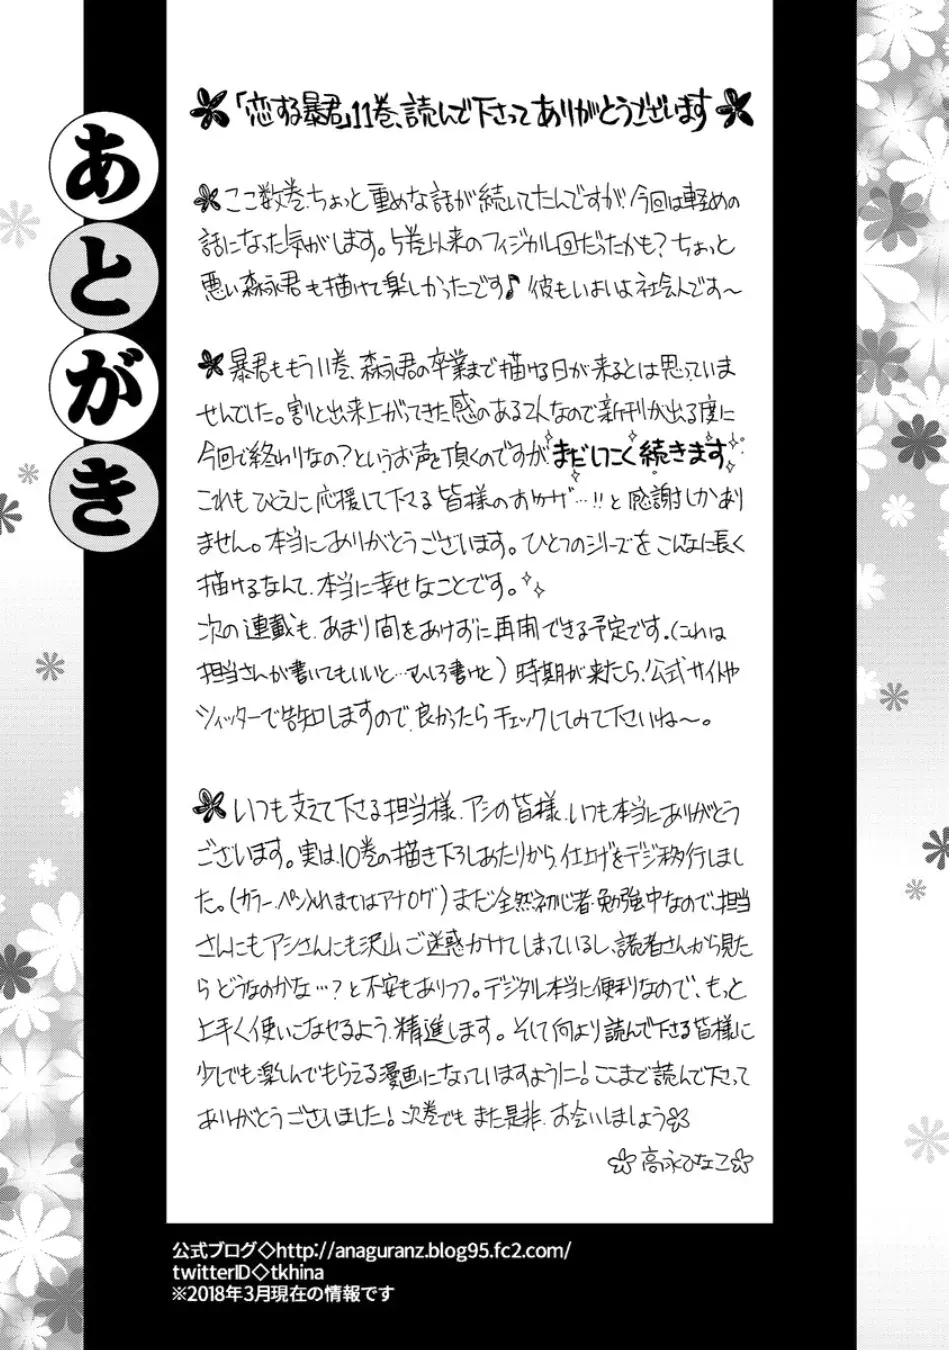 あとがき
「恋する暴君」11巻、読んで下さってありがとうございます
ここ数巻、ちょっと重めな話が続いてたんですが、今回は軽めの
話になった気がします。5巻以来のフィジカル回だったかも？ちょっと
悪い森永君も描けて楽しかったです♪彼もいよいよ社会人です～
暴君ももう11巻、森永君の卒業まで描ける日が来るとは思っていま
せんでした。割と出来上がってきた感のある2人なので新刊が出る度に
今回で終わりなの？というお声を頂くのですが、まだしつこく続きます
これもひとえに応援して下さる皆様のおかげ…!!と感謝しかあり
ません。本当にありがとうございます。ひとつのシリーズをこんなに長く
描けるなんて、本当に幸せなことです。
次の連載も、あまり間をあけずに再開できる予定です。（これは
担当さんが書いてもいいと…むしろ書けと）時期が来たら、公式サイトや
ツィッターで告知しますので、良かったらチェックしてみて下さいね～。
いつも支えて下さる担当様、アシの皆様、いつも本当にありがとう
ございます。実は、10巻の描き下ろしあたりから、仕上げをデジ移行しまし
た。（カラー、ペン入れまではアナログ）まだ全然初心者・勉強中なので、担当
さんにもアシさんにも沢山ご迷惑かけてしまっているし、読者さんから見た
らどうなのかな…？と不安もありつつ。デジタル本当に便利なので、もっと
上手く使いこなせるよう、精進します。そして何より読んで下さる皆様に
少しでも楽しんでもらえる漫画になっていますように！ここまで読んで下さって
ありがとうございました！次巻でもまた是非、お会いしましょう
高永ひなこ
公式ブログ◇http://anaguranz.blog95.fc2.com/
twitterID◇tkhina
※2018年3月現在の情報です